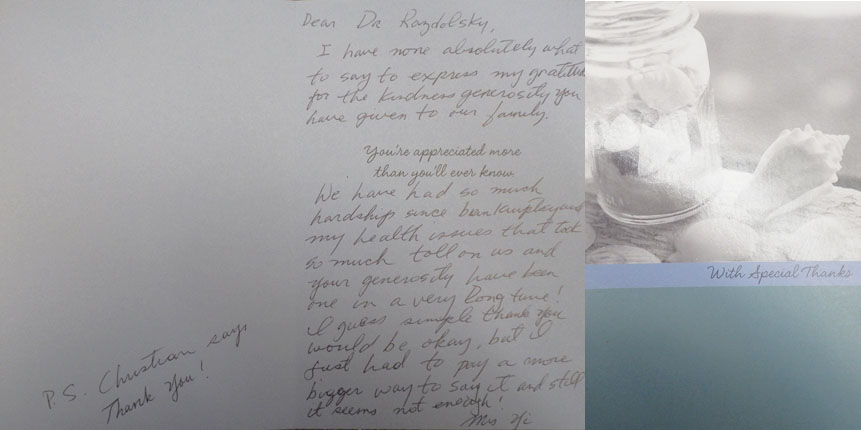 Dear Dr Razdolsky,
I have none absolutely what
to say to express my gratitude
for the kindness generosity you
have given to our family.
You're appreciated more
than you'll ever know.
We have had so much
hardship since
my health issues that took
so much toll on us and
your generosity have been
one in a very long time!
I guess simple thank you
would be okay, but I
just had to pay a more
bigger way to say it and still
it seems not enough!
Mrs Yi
P.S. Christian says
Thank You!
With Special Thanks